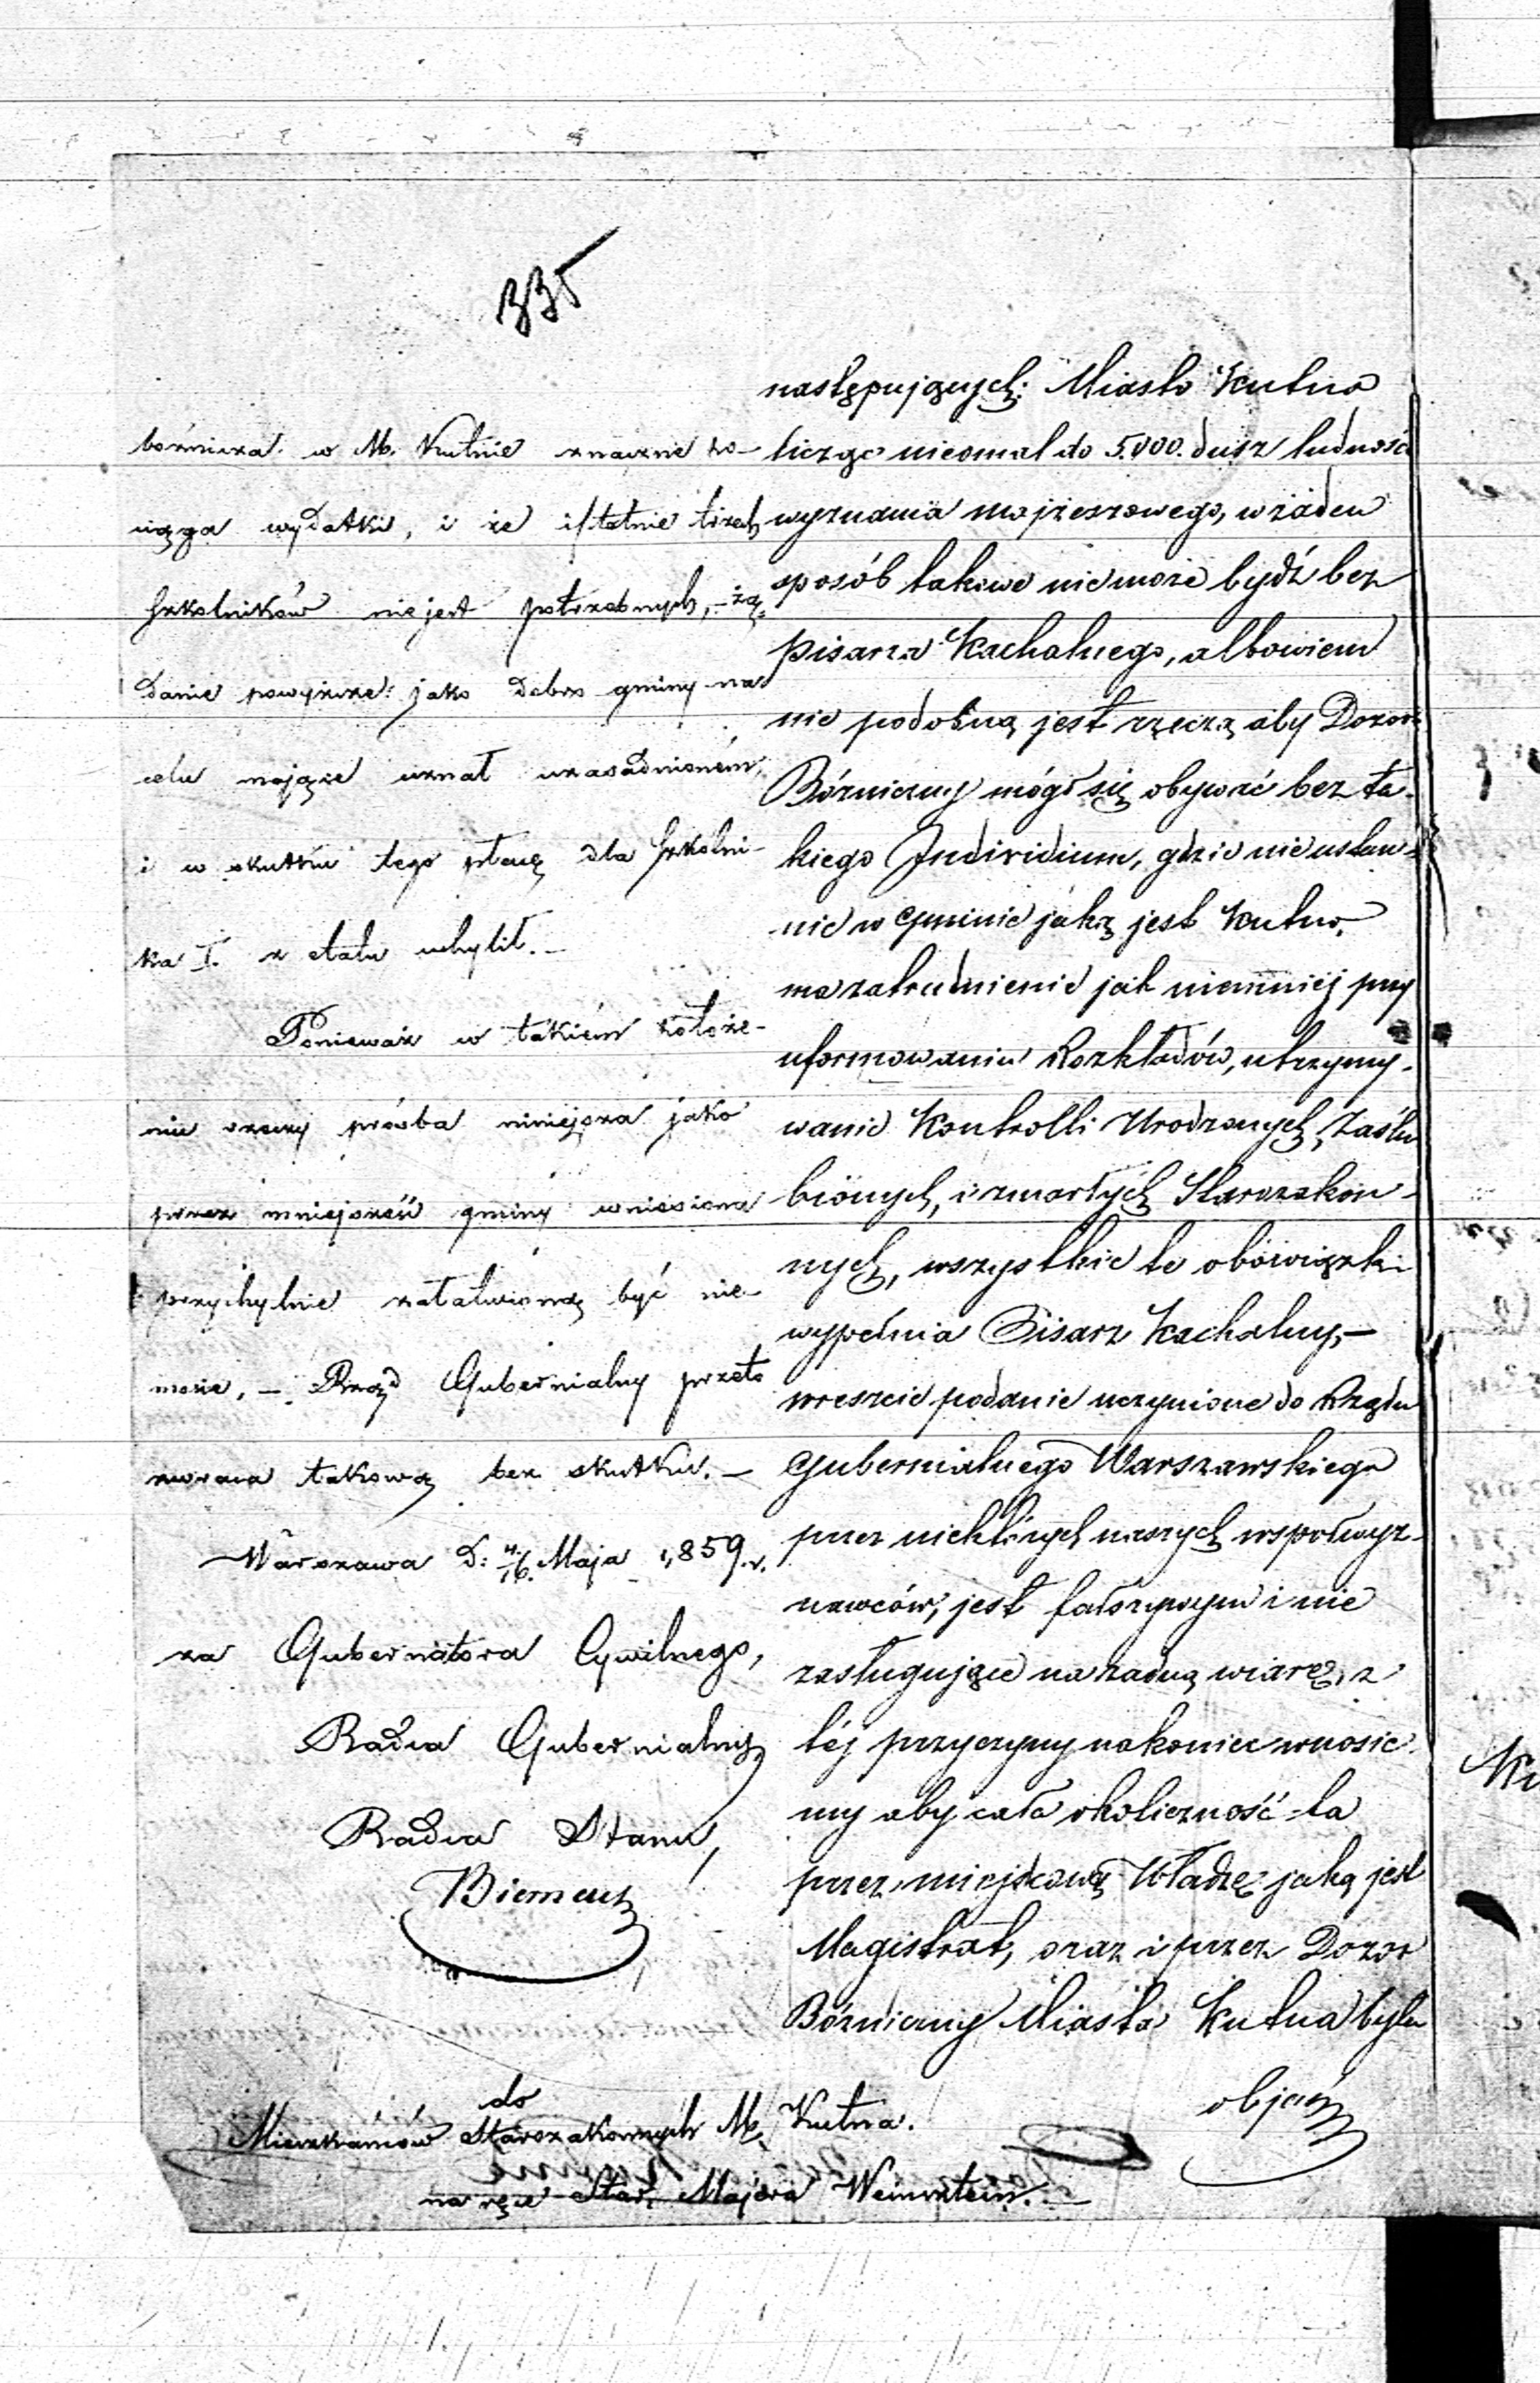 335
bóżnicza w M. Kutnie znaczne po-
ciąga wydatki, i że istotnie trzech
szkolników nie jest potrzebnych, – żą-
danie powyższe jako dobro gminy na
celu mające uznał uzasadnioném,
i w skutku tego płacę dla szkolni-
ka I. z etatu uchylił. –
Ponieważ w takiém położe-
niu rzeczy prośba niniejsza jako
przez mniejszość gminy wniesiona
przychylnie załatwioną być nie-
może, – Rząd Gubernialny przeto
zwraca takową bez skutku. –
Warszawa D: 4/16. Maja 1,859.r.
za Gubernatora Cywilnego,
Radca Gubernialny
Radca Stanu,
do
Mieszkańców Starozakonnych M. Kutna.
na ręce Star. Majera Weinstein. –
następujących: Miasto Kutno
licząc nieomal do 5.000. dusz ludność
wyznania mojżeszowego, w żaden
sposób takowe nie może bydź bez
pisarza Kachalnego, albowiem
nie podobną jest rzeczą aby Dozór
Bóżniczny mógł się obywać bez ta-
kiego Individium, gdzie nie ustan-
nie w Gminie jaką jest Kutno,
ma zatrudnienie jak niemniéj przy
uformowaniu Rozkładów, utrzymy-
wanie Kontrolli Urodzonych, Zaślu
bionych, i zmarłych Starozakon-
nych, wszystkie te obowiązki
wypełnia Pisarz Kachalny, –
wreszcie podanie uczynione do Rządu
Gubernialnego Warszawskiego
przez niektórych naszych wspołwyz-
nawców, jest fałszywym i nie
zasługujące na żadną wiarę, z
téj przyczyny nakoniec wnosie-
my aby cała okoliczność ta
przez miejscową Władzę jaką jest
Magistrat, oraz i przez Dozór
Bóżniczny Miasta Kutna była
objaś